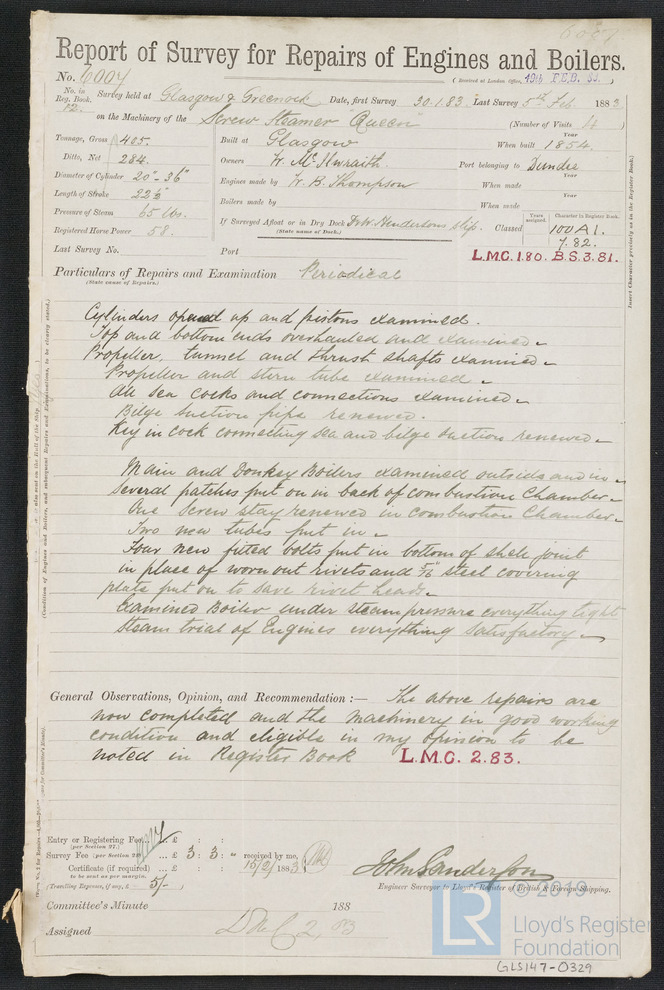 6007
Report of Survey for Repairs of Engines and Boilers.
No. 6007 (Received at London Office, 19th FEB. 83.
No. in Reg. Book. 12. Survey held at Glasgow & Greenock Date, first Survey 30.1.83 Last Survey 5th Feb 1883
on the Machinery of the Screw Steamer "Queen" (Number of Visits 4)
Tonnage, Gross 405. Built at Glasgow When built Year 1854.
Ditto, Net 284. Owners W. McIlwraith Port belonging to Dundee
Diameter of Cylinder 20" - 36" Engines made by W. B. Thompson When made Year
Length of Stroke 22½" Boilers made by When made Year
Pressure of Steam 65 lbs. If Surveyed Afloat or in Dry Dock D. & W. Hendersons slip. Classed Years assigned Character in Register Book. 100 A1.
(State name of Dock.)
Registered Horse Power 58. 7.82.
Last Survey No. Port L.M.C. 1.80. B.S. 3.81.
Particulars of Repairs and Examination Periodical
(State name of Repairs.)
Cylinders opened up and pistons examined.
Top and bottom ends overhauled and examined.
Propeller, tunnel and thrust shafts examined.
Propeller and stern tube examined.
All sea cocks and connections examined.
Bilge suction pipe renewed.
Key in cock connecting sea and bilge suction renewed.
Main and Donkey Boilers examined outside and in.
Several patches put on in back of combustion Chamber.
One Screw stay renewed in combustion Chamber.
Two new tubes put in.
Four new fitted bolts put in bottom of shell joint
in place of worn out rivets and 5/16" steel covering
plate put on to save rivet heads.
Examined Boiler under steam pressure everything tight
Steam trial of Engines everything satisfactory.
General Observations, Opinion, and Recommendation :— The above repairs are
now completed and the machinery in good working
condition and eligible in my opinion to be
noted in Register Book L.M.C. 2.83.
Entry or Registering Fee, ... £ : :
(per Section 27.)
Survey Fee (per Section 28) ... £ 3 : 3 : " received by me,
Certificate (if required) ... 15/2/1883
to be sent as per margin.
(Travelling Expenses, if any, £ 5/-)
John Sanderson
Engineer Surveyor to Lloyd's Register of British & Foreign Shipping.
Committee's Minute 188
Assigned L M C 2, 83
LR © 2019
Lloyd's Register
Foundation
GLS147-0329